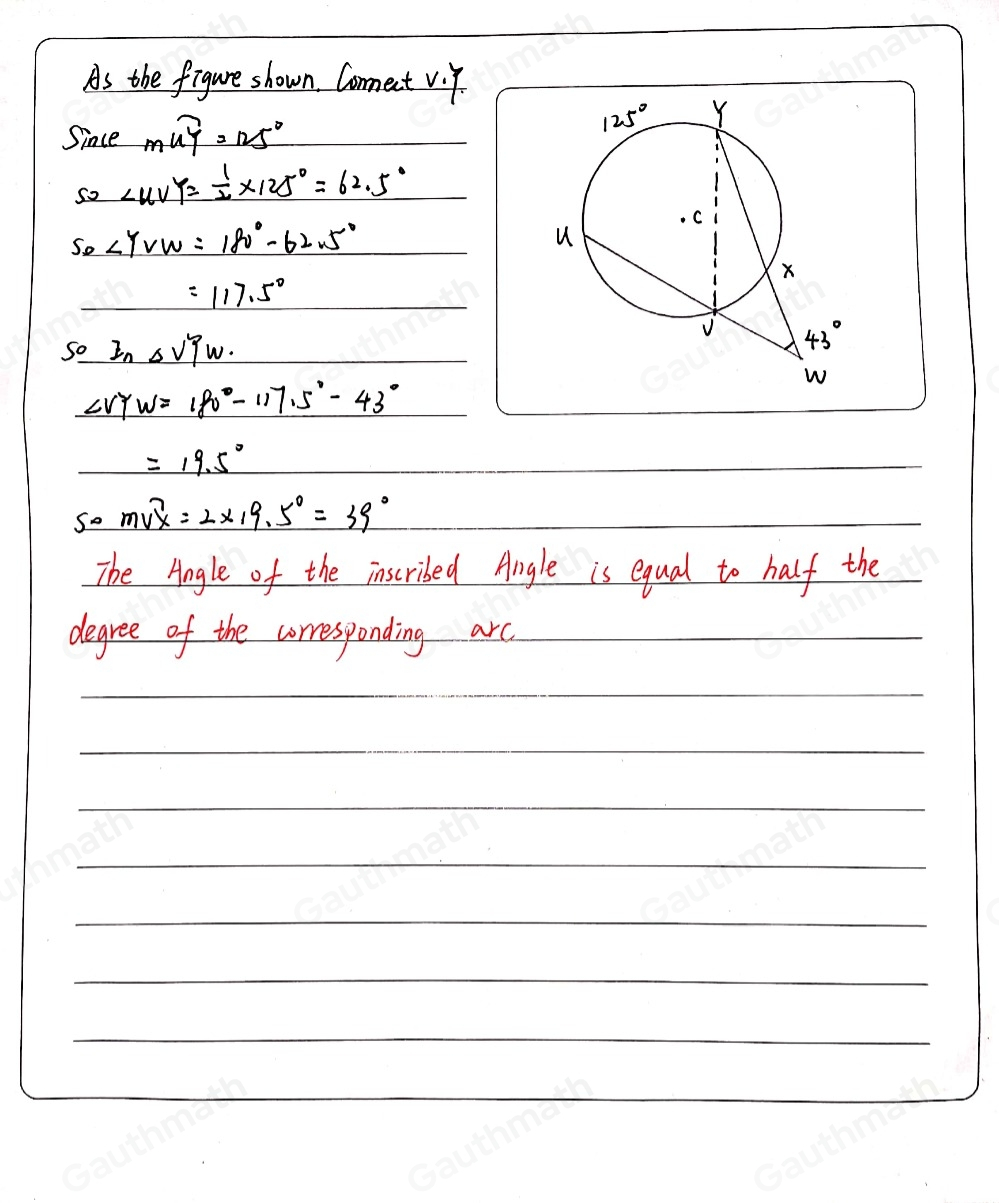 As the figure shown. Connect V.Y.
Since mUY = 125°
so ∠UVY = 1/2 × 125° = 62.5°
So ∠YVW = 180° - 62.5°
= 117.5°
So In △VYW.
∠VYW = 180° - 117.5° - 43°
= 19.5°
So mVX = 2 × 19.5° = 39°
The Angle of the inscribed Angle is equal to half the
degree of the corresponding arc
125°
Y
C
U
X
V
43°
W
Gauthmath